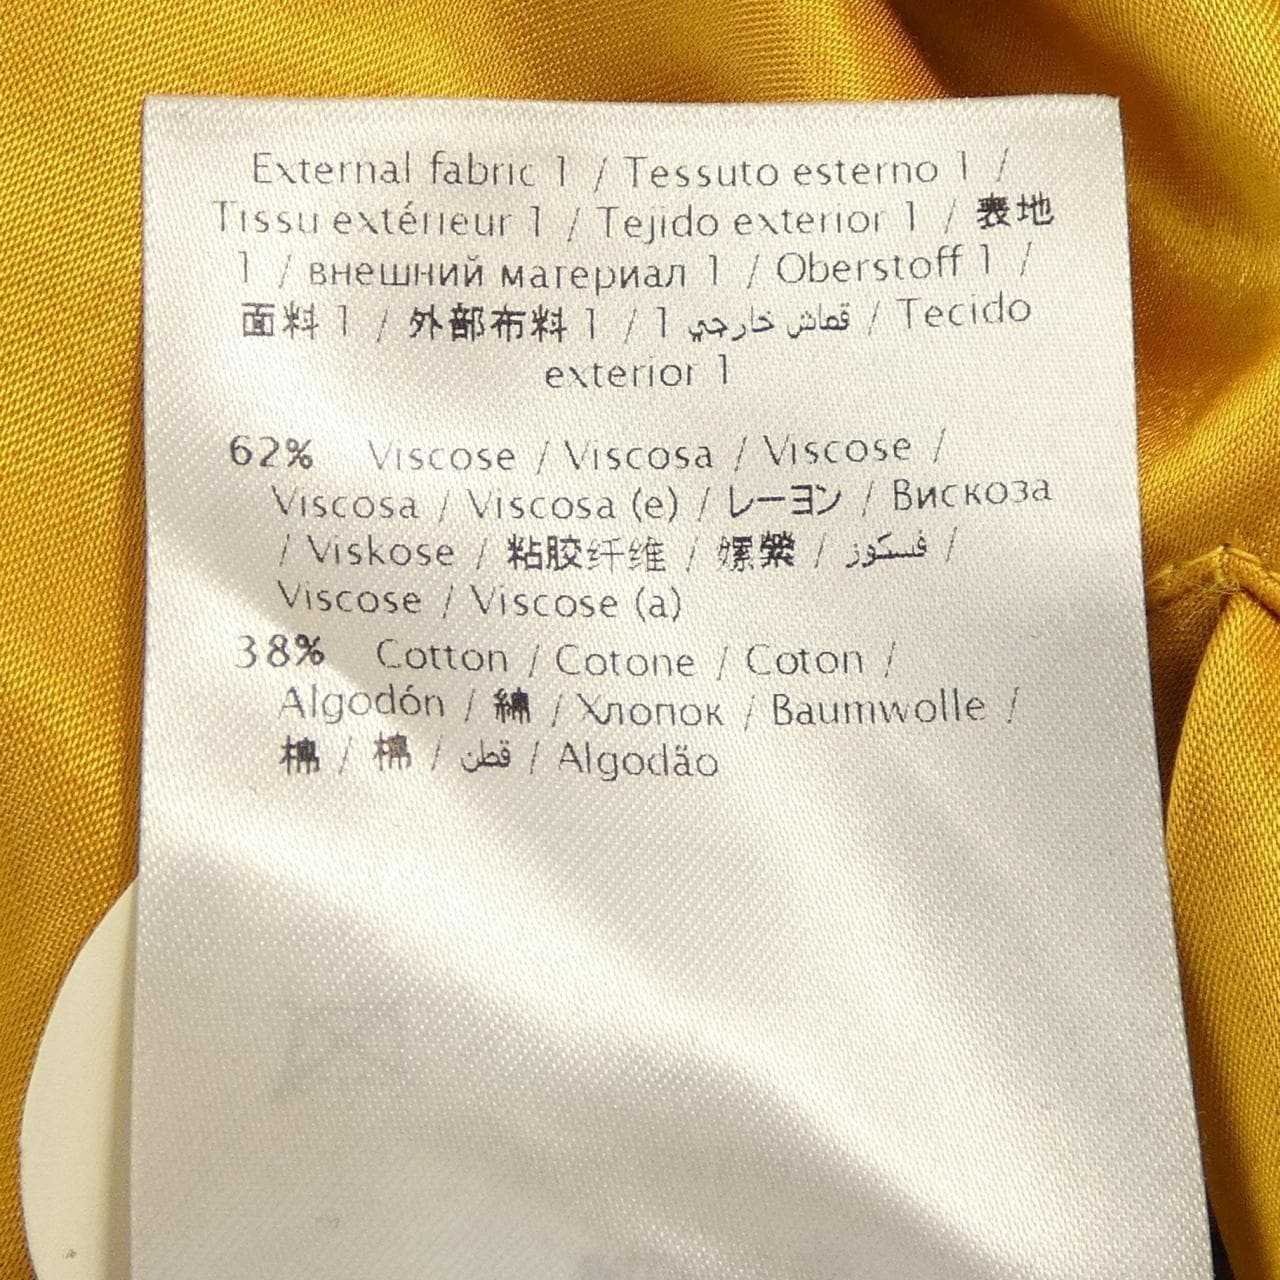 External fabric 1 / Tessuto esterno 1 /
Tissu extérieur 1 / Tejido exterior 1 / 表地
1 / внешний материал 1 / Oberstoff 1 /
面料 1 / 外部布料 1 / قماش خارجي 1 / Tecido
exterior 1
62% Viscose / Viscosa / Viscose /
Viscosa / Viscosa (e) / レーヨン / Вискоза
/ Viskose / 粘胶纤维 / 嫘縈 / فسكوز /
Viscose / Viscose (a)
38% Cotton / Cotone / Coton /
Algodón / 綿 / Хлопок / Baumwolle /
棉 / 棉 / قطن / Algodão